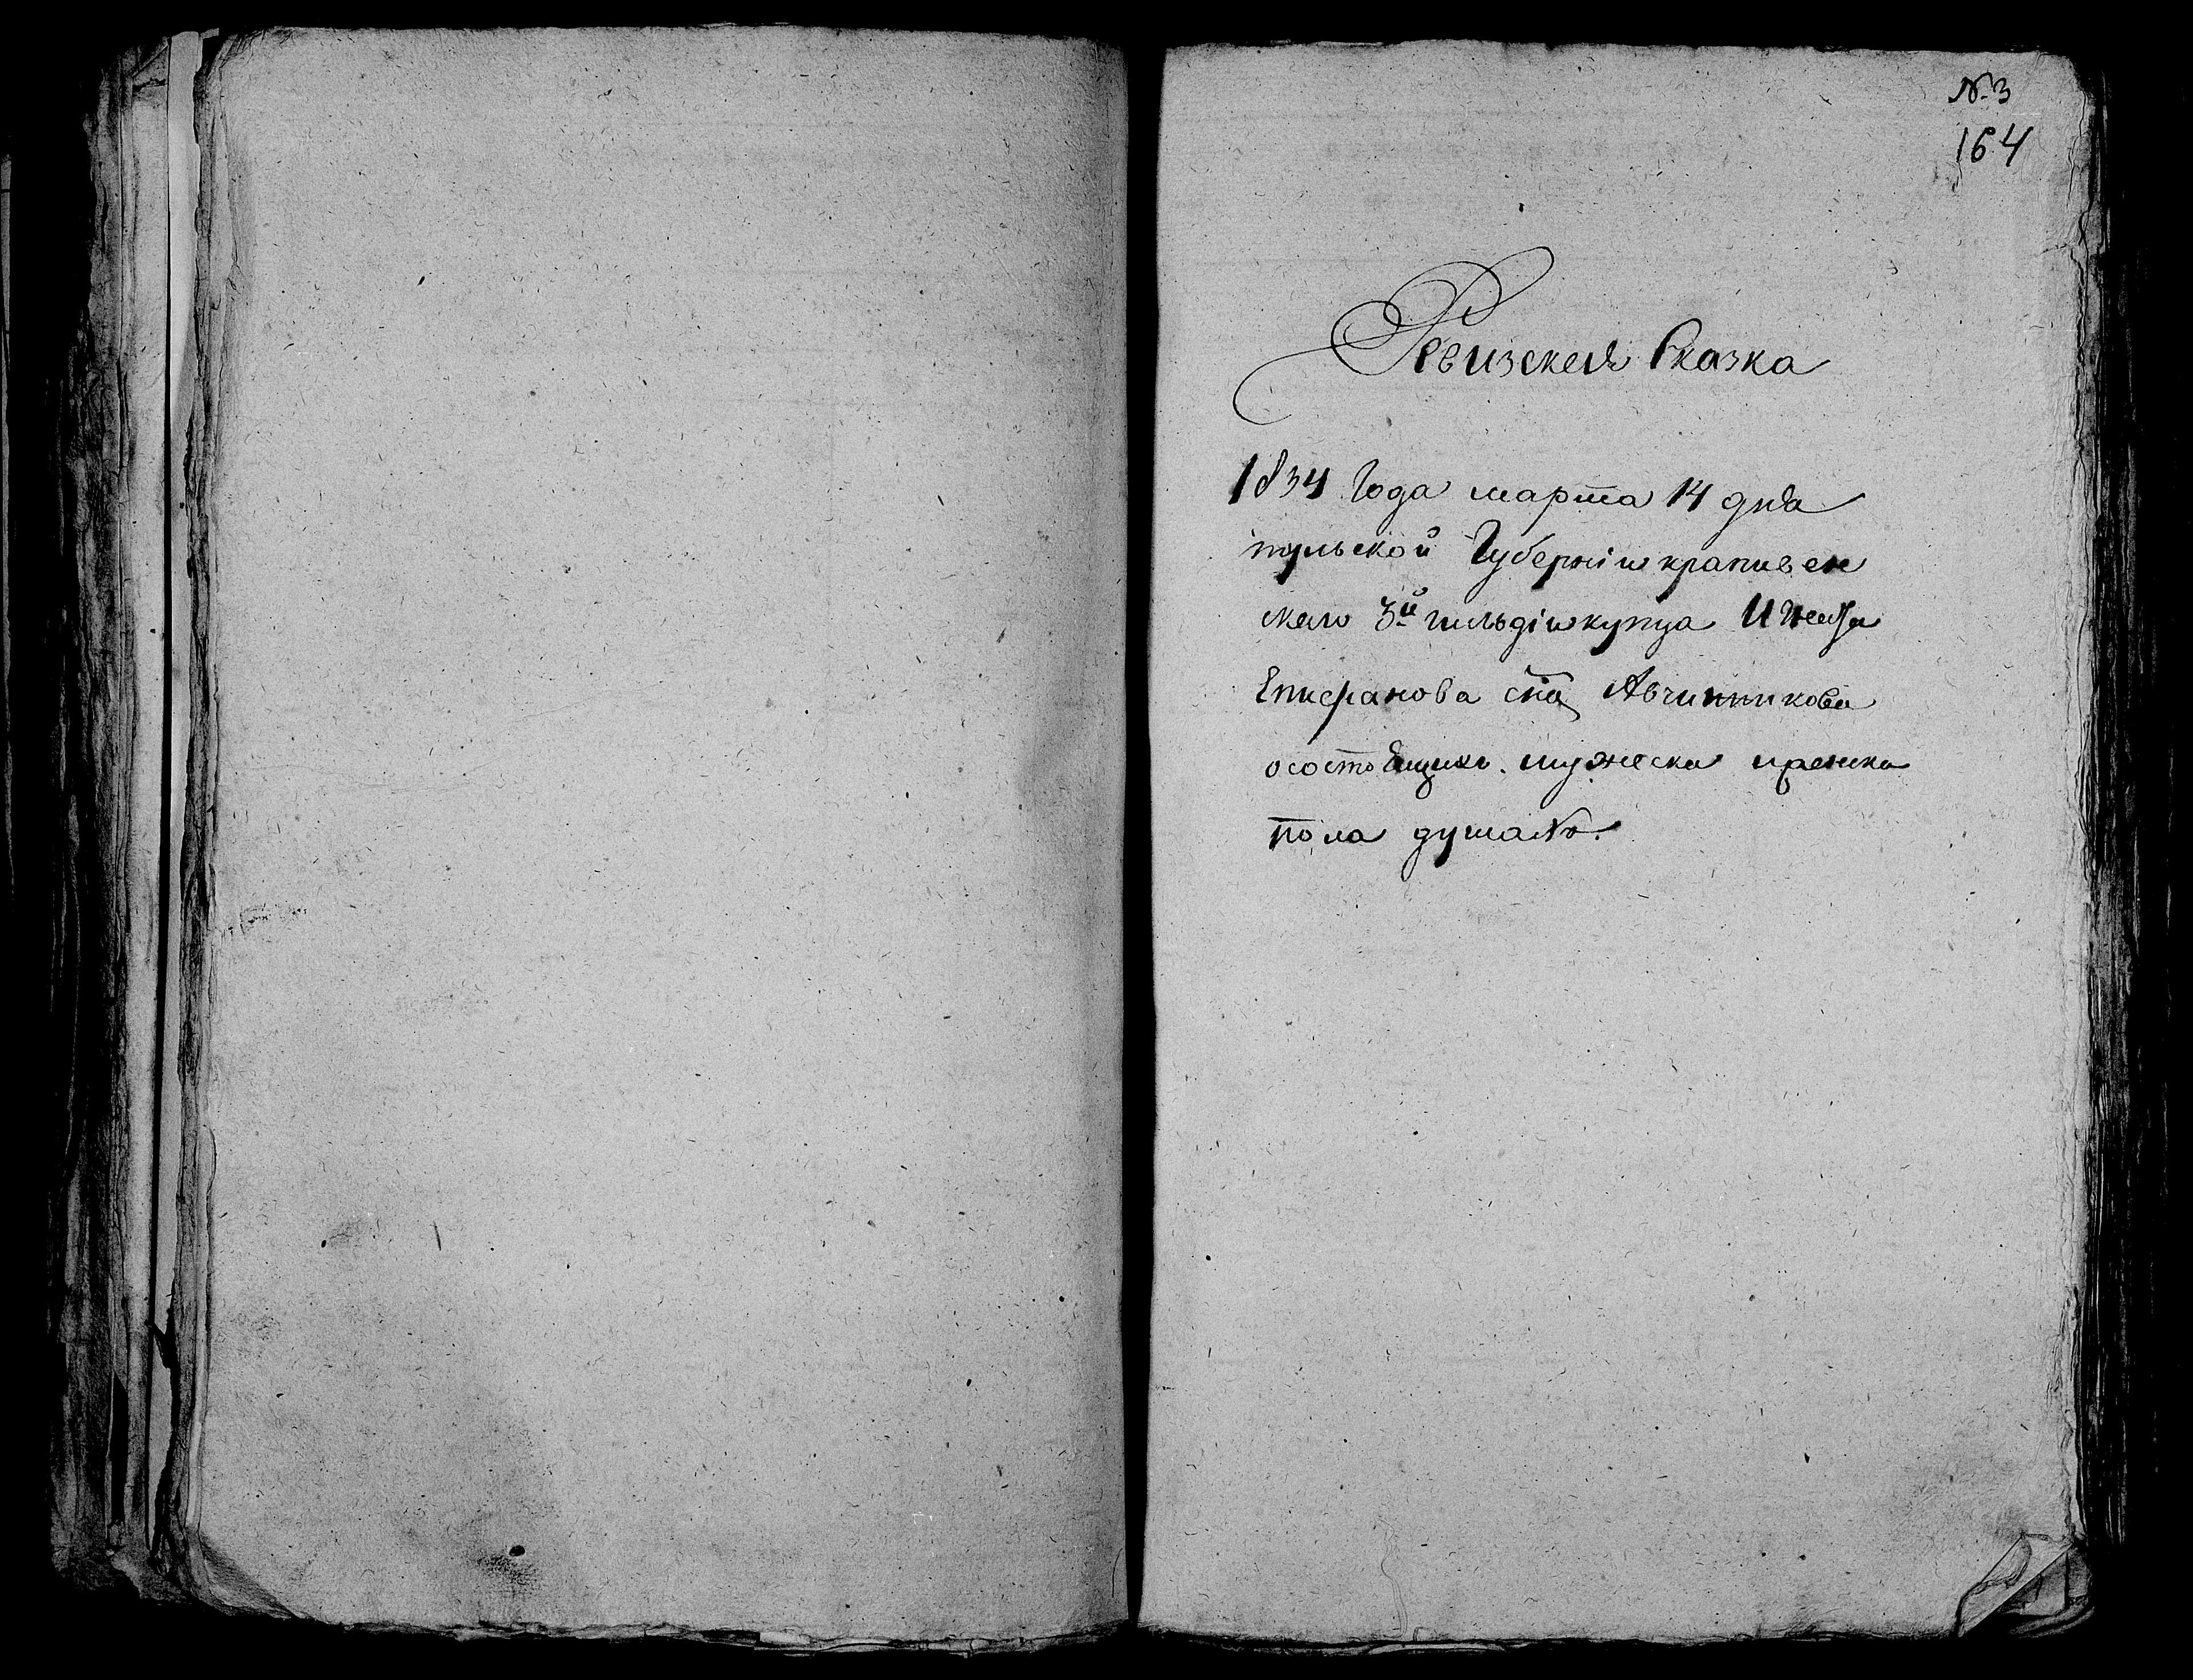 № 3
164
Ревизская Сказка
1834 Года марта 14 дня
тульской Губерніи крапивен
скаго 3й гильдіи купца
Епифанова сна Авчинникова
о состоящихъ мужеска и женска
пола душахъ.